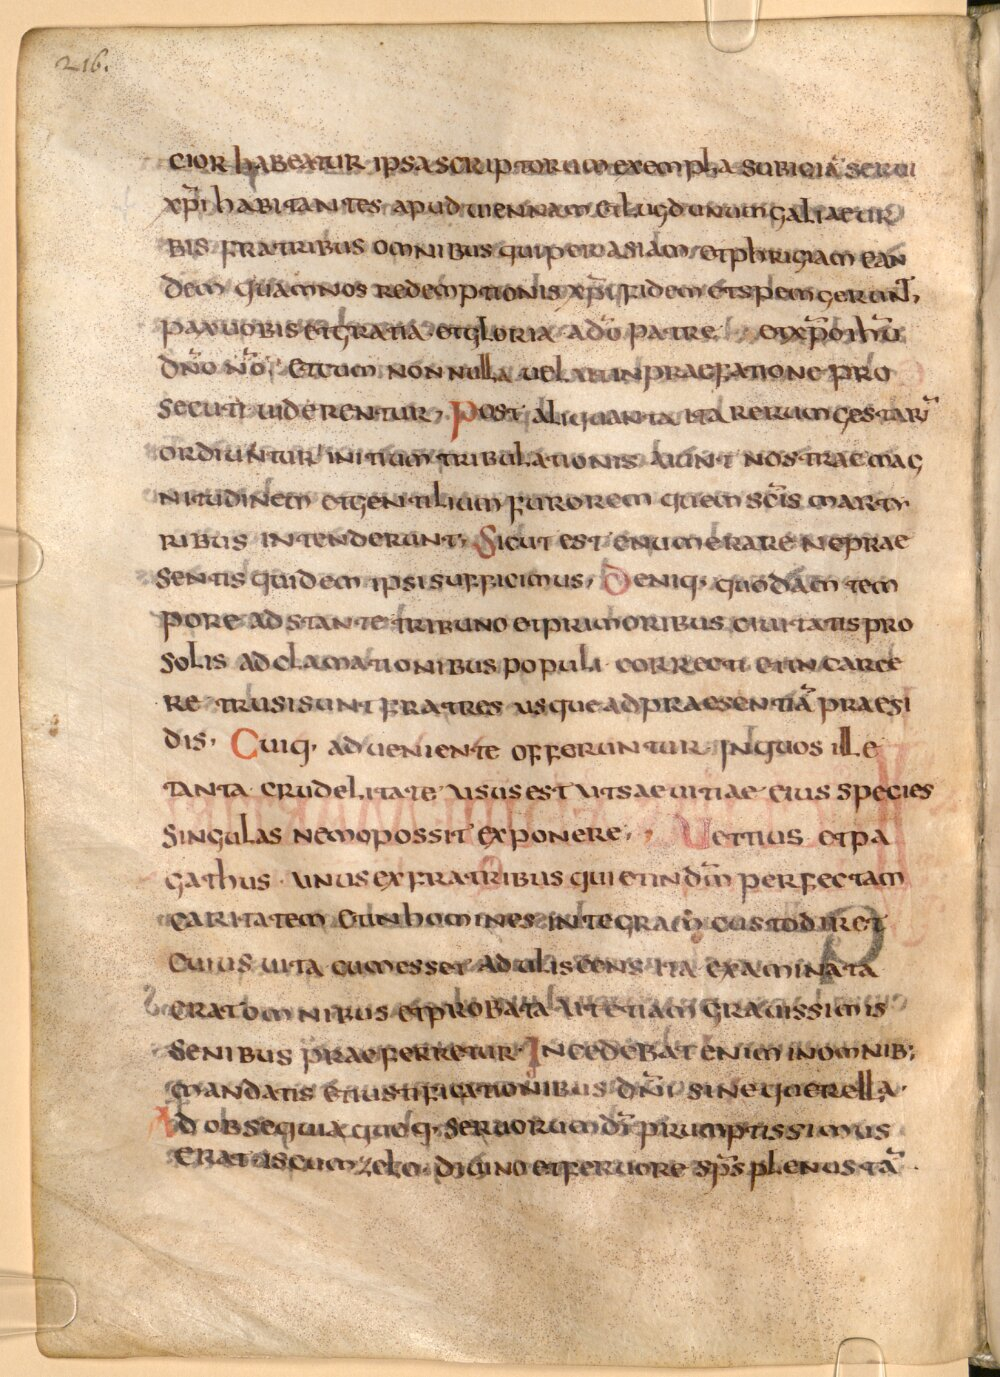 216.
cior habeatur ipsa scriptorum exempla subiciā serui
xp̄i habitantes apud uiennam et lugdunum galiae ur
bis fratribus omnibus qui per asiam et phrigiam ean
dem quam nos redemptionis xp̄i fidem et spem gerunt,
pax uobis et gratia et gloria a dō patre et xp̄o ihū
dn̄o nō, et cum nonnulla uelut in praefatione pro
secuti uiderentur, Post aliquanta ita rerum gestarū
ordiuntur initium tribulationis aiunt nostrae mag
nitudinem et gentilium furorem quem sc̄is marty
ribus intenderunt, Sicut est enumerare ne prae
sentis quidem ipsi sufficimus, Deniq· quodam tem
pore adstante tribuno et primoribus ciuitatis pro
solis adclamationibus populi correcti et in carce
re trusi sunt fratres usque ad praesentiā praesi
dis, Cuiq· adueniente offeruntur In quos ille
tanta crudelitate usus est ut saeuitiae eius species
singulas nemo possit exponere, Uettius et pa
gathus unus ex fratribus qui et in dm̄ perfectam
caritatem et in homines integram custodiret
cuius uita cum esset adulis cens ita examinata
erat omnibus et probata ut etiam grauissimis
senibus praeferretur Incedebat enim in omnib;
mandatis et iustificationibus dn̄i sine querella·
Ad obsequia quoq· seruorum dī prumptissimus
erat is cum zelo diuino et feruore sp̄s plenus tā